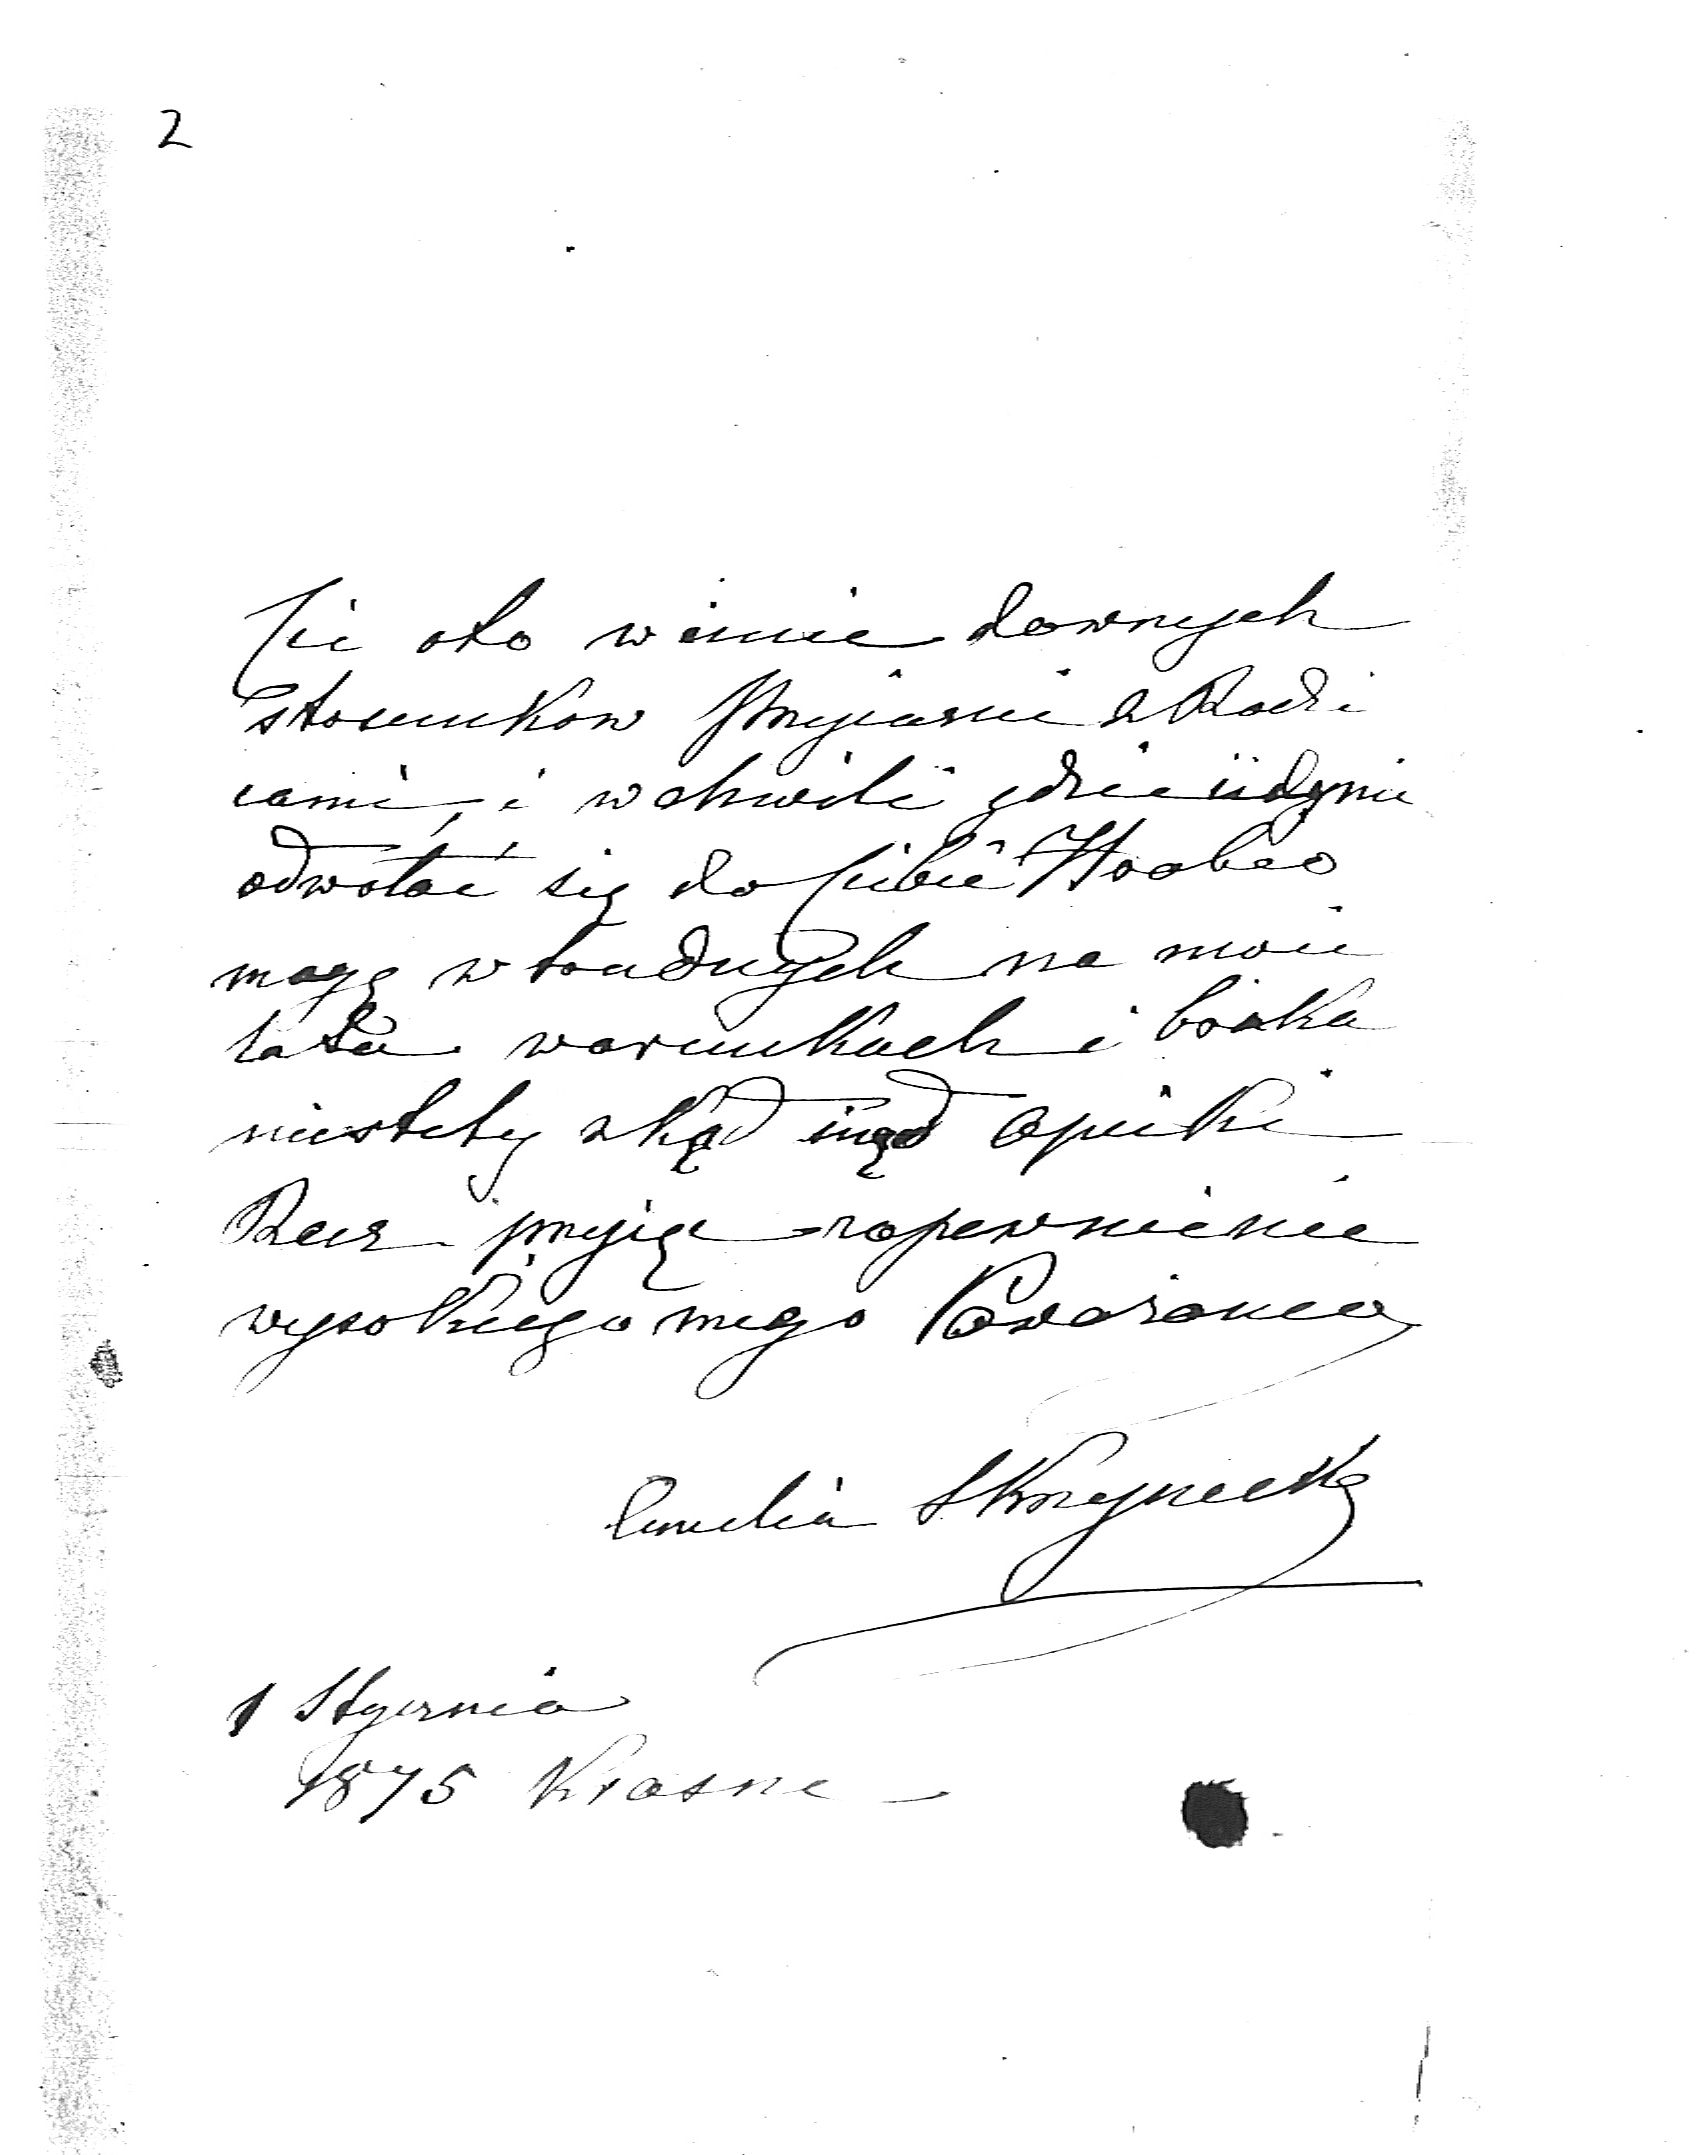 2
Cię oto w imie dawnych
stosunkow Przyjazni z Rodzi
cami, i w chwili gdzie jedynie
odwołać się do Ciebie Hrabio
mogę w trudnych na moie
lata warunkach i braku
niestety zkąd inąd opieki
Racz przyjąć zapewnienie
wysokiego mego Poważania
Emelia Skrzynecka
1 Stycznia
1875 Krasne